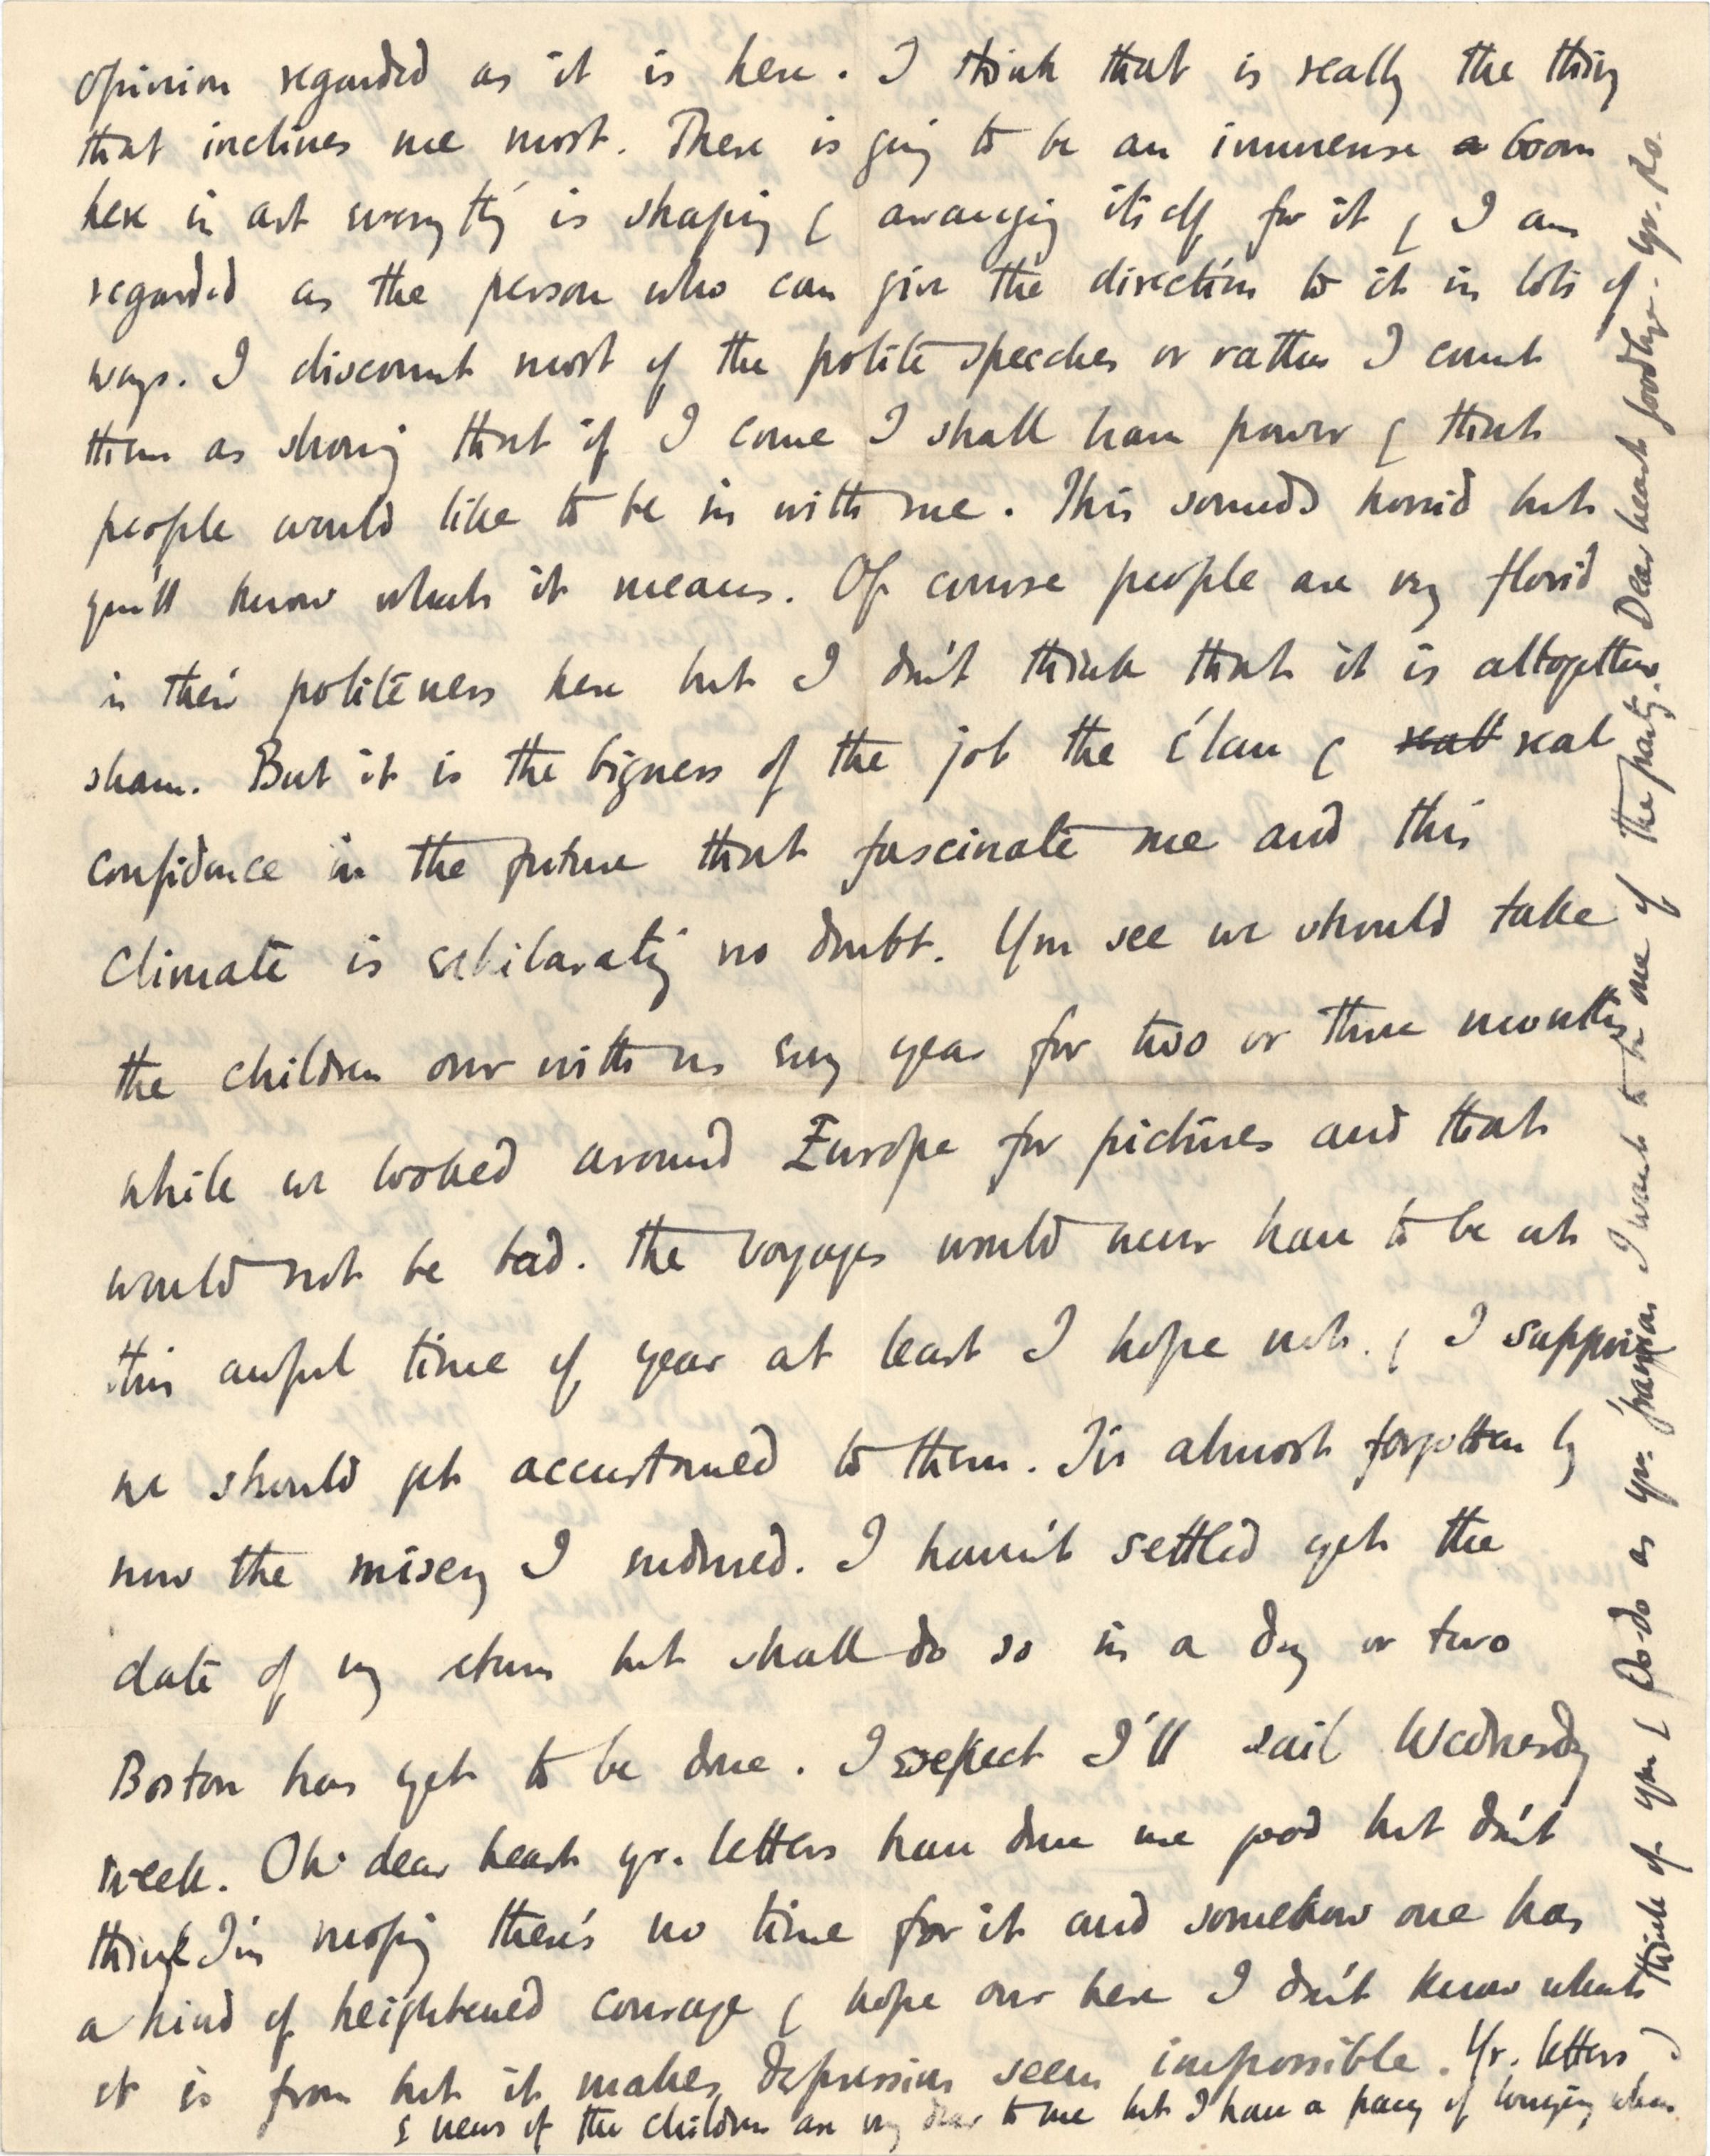 opinion regarded as it is here. I think that is really the thing
that inclines me most. There is going to be an immense a boom
here in art everything is shaping & arranging itself for it & I am
regarded as the person who can give the direction to it in lots of
ways. I discount most of the polite speeches or rather I count
them as showing that if I come I shall have power & that
people would like to be in with me. This sounds horrid but
you'll know what it means. Of course people are very florid
in their politeness here but I don't think that it is altogether
sham. But it is the bigness of the job the élan & real real
confidence in the future that fascinate me and this
climate is exhilarating no doubt. You see we should take
the children over with us every year for two or three months
while we looked around Europe for pictures and that
would not be bad. The voyages would never have to be at
this awful time of year at least I hope not. & I suppose
we should get accustomed to them. I've almost forgotten by
now the misery I endured. I haven't settled yet the
date of my return but shall do so in a day or two
Boston has yet to be done. I expect I'll sail Wednesday
week. Oh dear heart yr. letters have done me good but don't
think I'm moping there's no time for it and somehow one has
a kind of heightened courage & hope over here I don't know what
it is from but it makes depression seem impossible. Yr. letters
& news of the children are very dear to me but I have a pang of longing when I
think of you & Po-do as yr. I want to be one of the party. Dear heart goodbye. Yr. Ro.